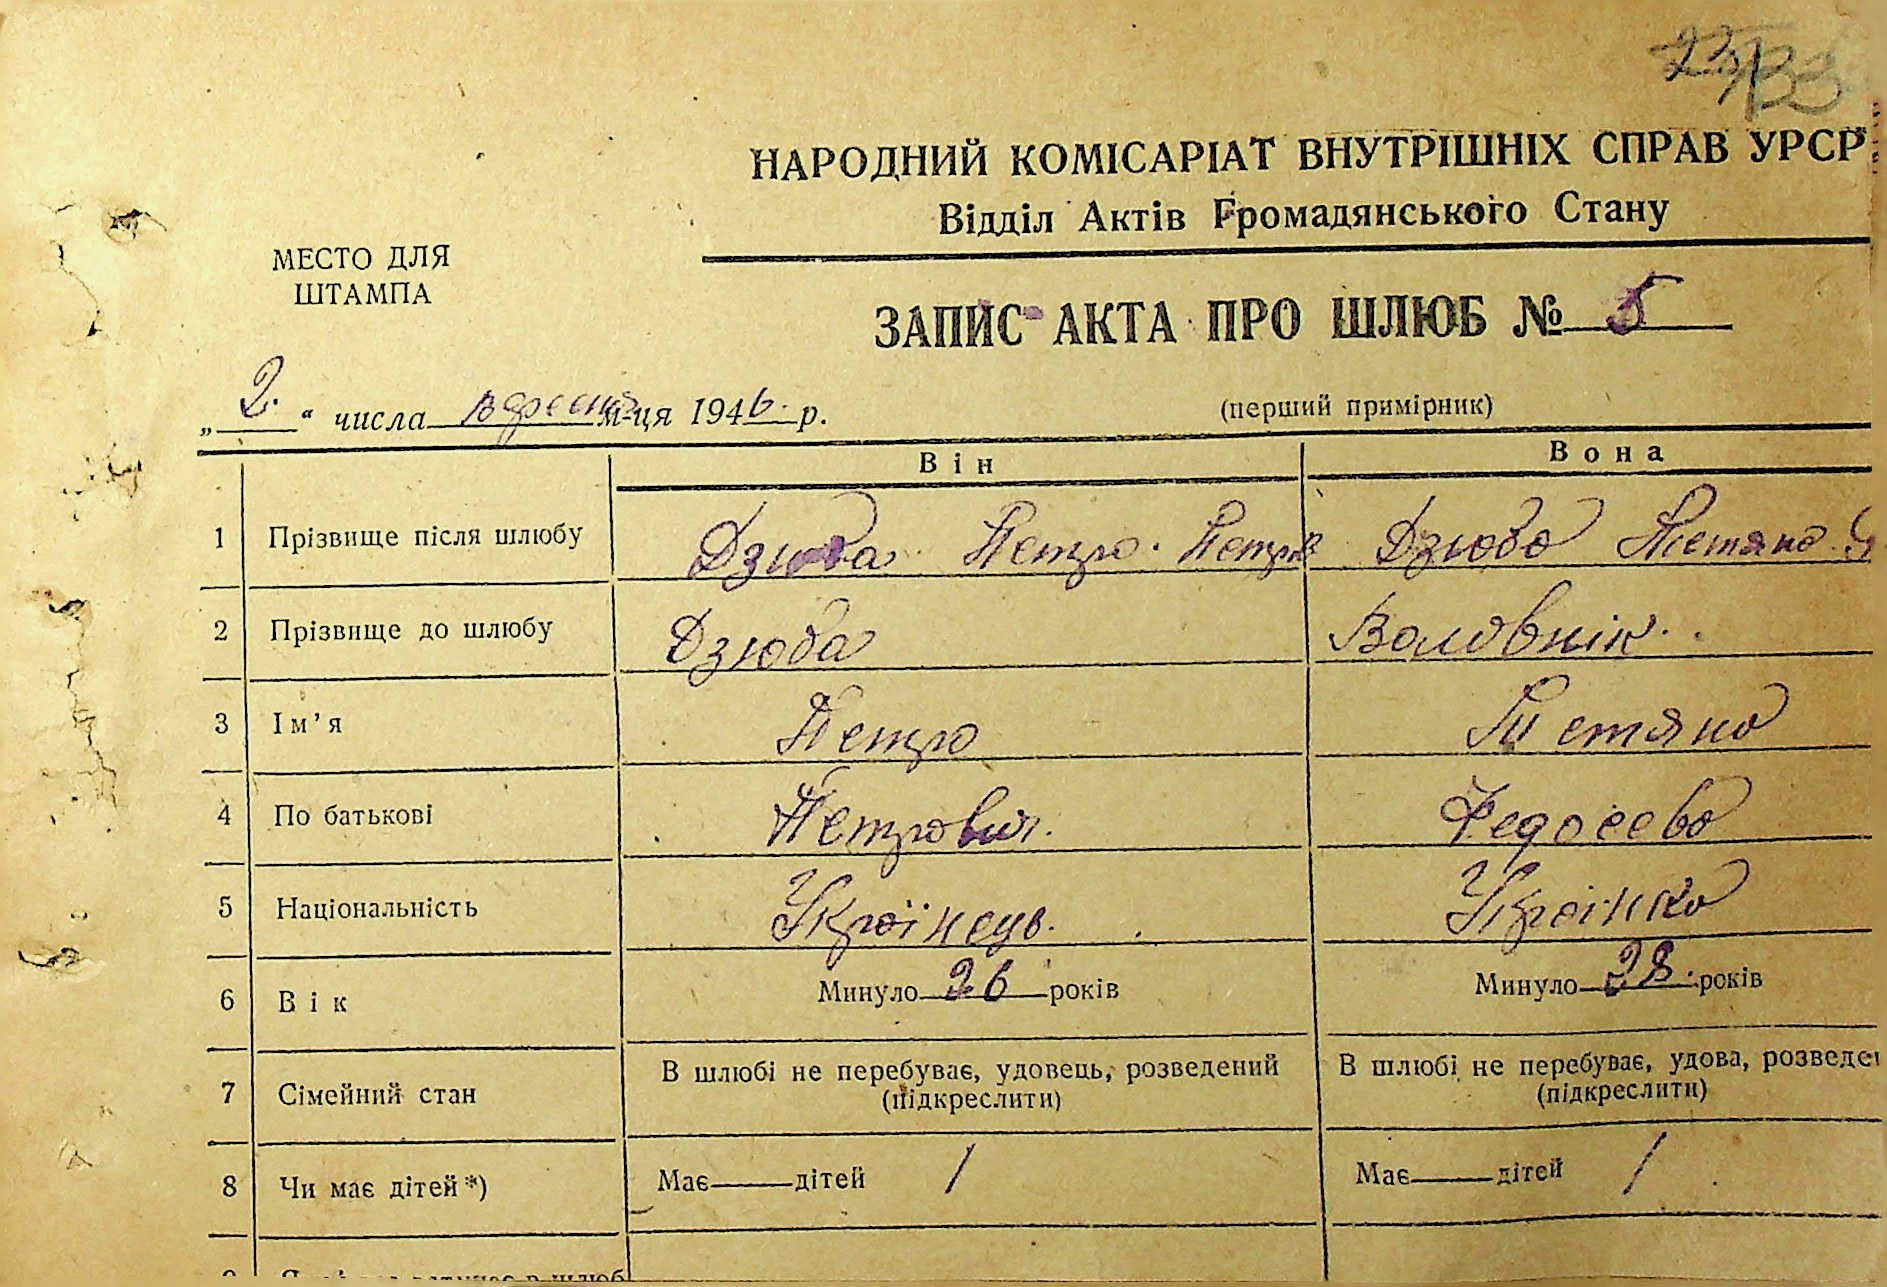 133
НАРОДНИЙ КОМІСАРІАТ ВНУТРІШНІХ СПРАВ УРСР
Відділ Актів Громадянського Стану
МЕСТО ДЛЯ
ШТАМПА
ЗАПИС АКТА ПРО ШЛЮБ № 5
„2.“ числа вересня м-ця 1946. р.
(перший примірник)
Він Вона
1 Прізвище після шлюбу Дзюба Петро Петров Дзюба Тетяна
2 Прізвище до шлюбу Дзюба Воловнік
3 Ім'я Петро Тетяна
4 По батькові Петрович. Федосеева
5 Національність Українець. Українка
6 Вік Минуло 26 років Минуло 28. років
7 Сімейний стан В шлюбі не перебуває, удовець, розведений (підкреслити) В шлюбі не перебуває, удова, розведе (підкреслити)
8 Чи має дітей*) Має дітей / Має дітей /